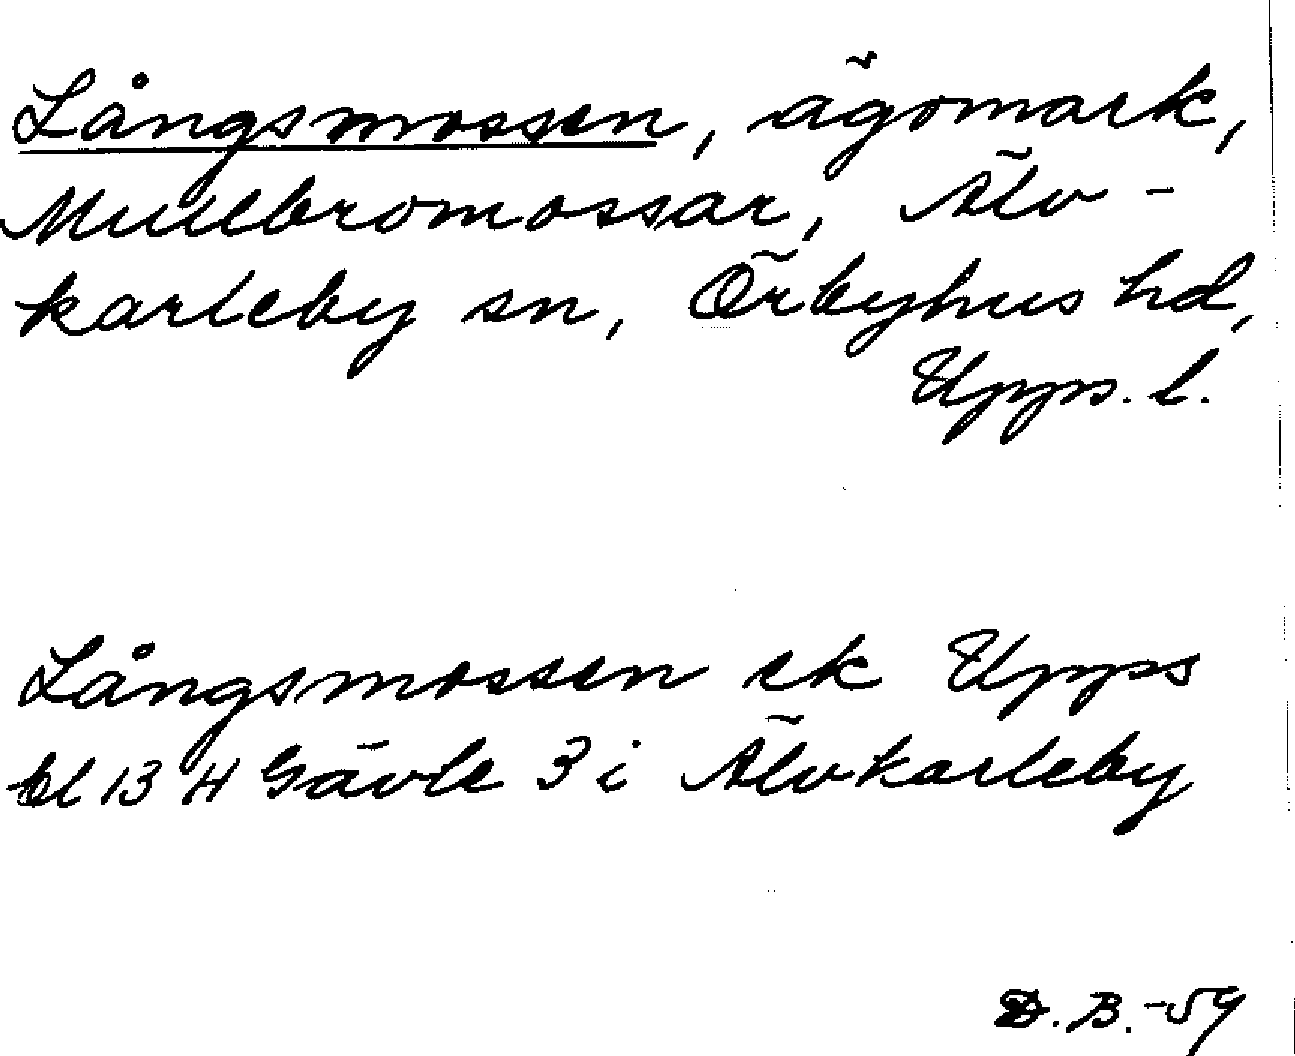 Långsmossen, ägomark,
Mullbromossar, Älv-
karleby sn, Örbyhus hd,
Upps. l.
Långsmossen ek Upps
bl 13 H Gävle 3 i Älvkarleby
D. B. -59